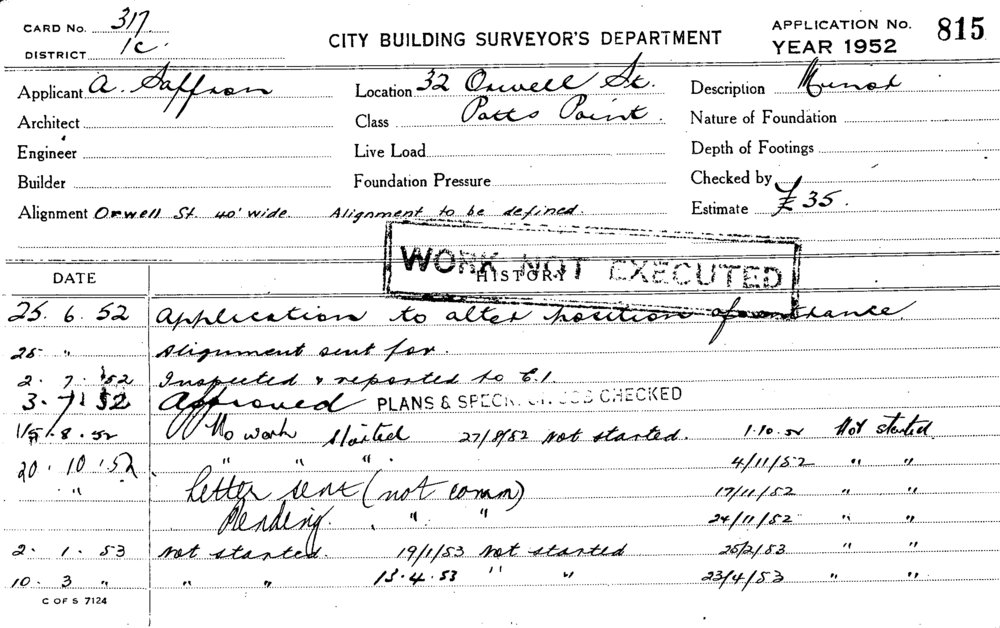 CARD No. 317
DISTRICT 1C.
CITY BUILDING SURVEYOR'S DEPARTMENT
APPLICATION No. 815
YEAR 1952
Applicant A. Saffron
Location 32 Orwell St.
Description Minor
Architect
Class Potts Point.
Nature of Foundation
Engineer
Live Load
Depth of Footings
Builder
Foundation Pressure
Checked by
Alignment Orwell St. 40' wide Alignment to be defined.
Estimate £35.
WORK NOT EXECUTED
DATE
HISTORY
25. 6. 52 Application to alter position of entrance.
25 " Alignment sent for.
2. 7. 52 Inspected & reported to C.I.
3. 7. 52 Approved PLANS & SPECN. CHECKED
8. 52 No work started 27/8/52 Not started. 1.10.52 Not started.
20. 10. 52 " " " 4/11/52 " "
" Letter sent (not comm) 17/11/52 " "
Pending. " " 24/11/52 " "
2. 1. 53 Not started. 19/1/53 Not started 25/2/53 " "
10. 3 " " " 13.4.53 " " 23/4/53 " "
C OF S 7124